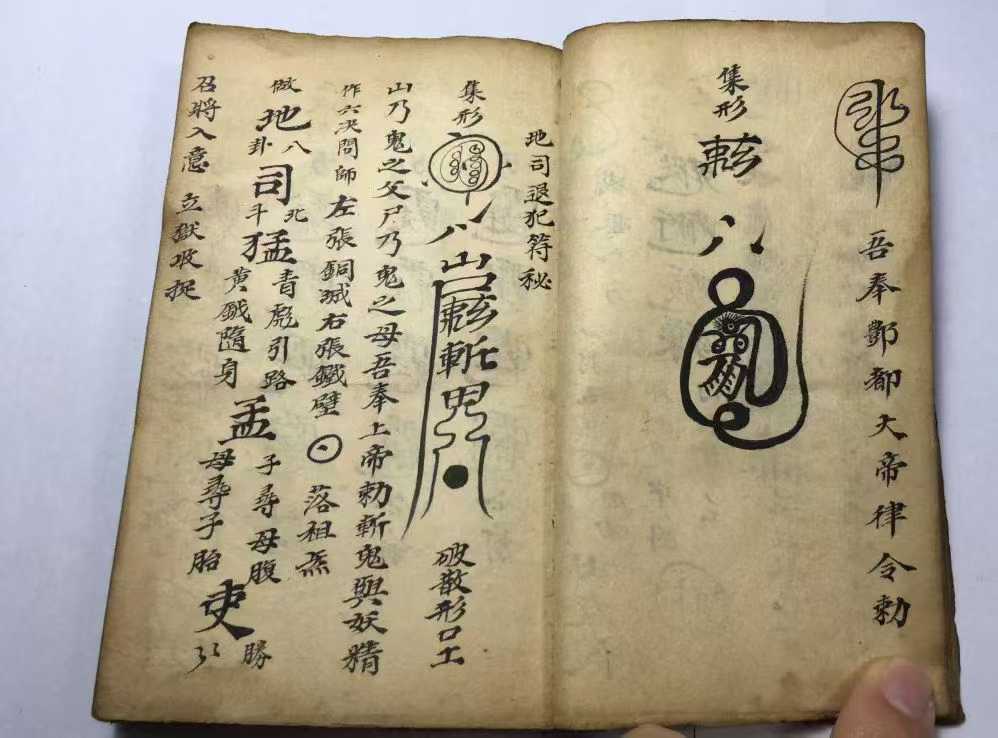 吾奉酆都大帝律令勅
集形
八
地司退犯符秘
集形
八山
斬
破散形口工
山乃鬼之父尸乃鬼之母吾奉上帝勅斬鬼與妖精
作六决問師左張銅滅右張鐵壁
落祖炁
做地八卦司北斗猛青彪引路黃鉞隨身孟子尋母腹母尋子胎吏勝
召將入意立獄收捉